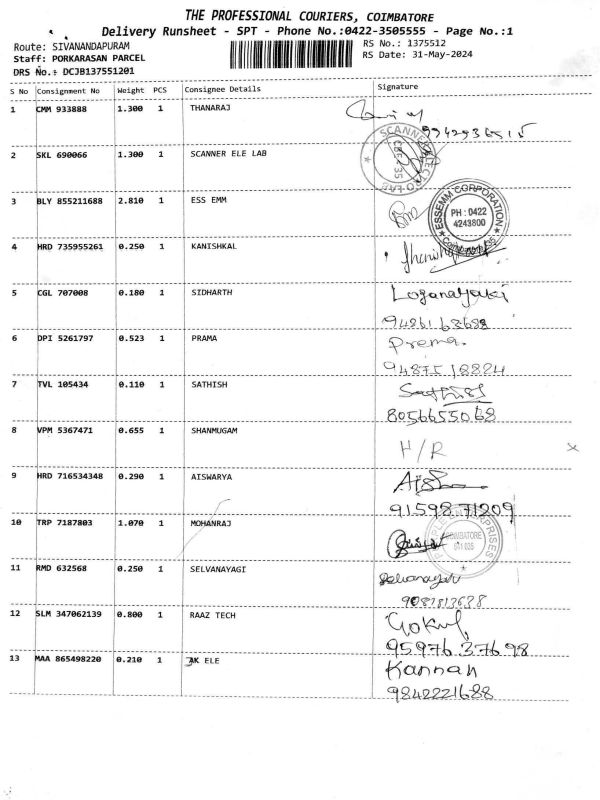 THE PROFESSIONAL COURIERS, COIMBATORE
Delivery Runsheet - SPT - Phone No.:0422-3505555 - Page No.:1
Route: SIVANANDAPURAM
RS No.: 1375512
Staff: PORKARASAN PARCEL
RS Date: 31-May-2024
DRS No.: DCJB137551201
S No Consignment No Weight PCS Consignee Details Signature
1 CMM 933888 1.300 1 THANARAJ
2 SKL 690066 1.300 1 SCANNER ELE LAB
SCANNER ELECTRO LAB CBE-35
3 BLY 855211688 2.810 1 ESS EMM
ESSEMM CORPORATION PH : 0422 4243800
4 HRD 735955261 0.250 1 KANISHKAL
5 CGL 707008 0.180 1 SIDHARTH Loganayaki
6 DPI 5261797 0.523 1 PRAMA Prema.
9487518824
7 TVL 105434 0.110 1 SATHISH Sathish
8056655068
8 VPM 5367471 0.655 1 SHANMUGAM H/R x
9 HRD 716534348 0.290 1 AISWARYA
9159871209
10 TRP 7187803 1.070 1 MOHANRAJ
ENTERPRISES COIMBATORE 641 035
11 RMD 632568 0.250 1 SELVANAYAGI Selvanayaki
12 SLM 347062139 0.800 1 RAAZ TECH Gokul
9597637698
13 MAA 865498220 0.210 1 AK ELE Kannan
9842221688